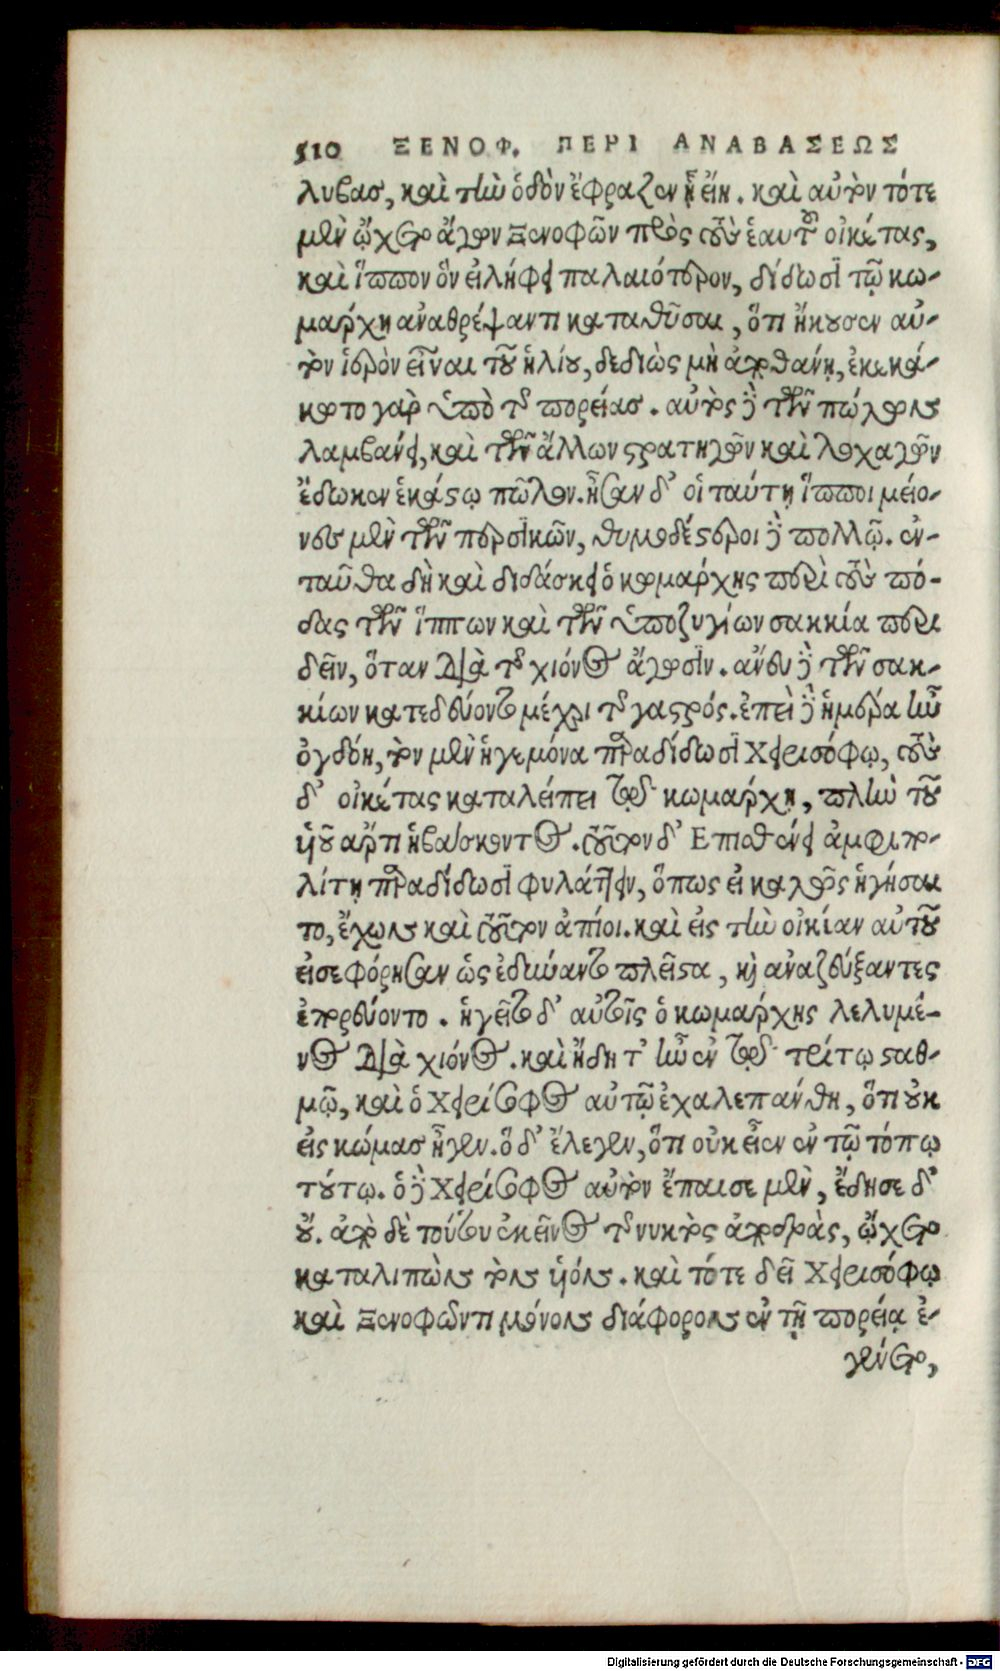 510 ΞΕΝΟΦ. ΠΕΡΙ ΑΝΑΒΑΣΕΩΣ
λυβας, καὶ τὴν ὁδὸν ἔφραζεν ᾗ εἴη. καὶ αὐτὸν τότε
μὲν ᾤχετο ἄγων Ξενοφῶν πρὸς τοὺς ἑαυτοῦ οἰκέτας,
καὶ ἵππον ὃν εἰλήφει παλαιότερον, δίδωσι τῷ κω-
μάρχη ἀναθρέψαντι καταθῦσαι, ὅτι ἤκουσεν αὐ-
τὸν ἱερὸν εἶναι τοῦ ἡλίου, δεδιὼς μὴ ἀποθάνῃ, ἐκεκά-
κωτο γὰρ ὑπὸ τῆς πορείας. αὐτὸς δὲ τῶν πώλων
λαμβάνει, καὶ τῶν ἄλλων στρατηγῶν καὶ λοχαγῶν
ἔδωκεν ἑκάστῳ πῶλον. ἦσαν δ' οἱ ταύτῃ ἵπποι μείο-
νες μὲν τῶν περσικῶν, θυμοδέστεροι δὲ πολλῷ. ἐν-
ταῦθα δὴ καὶ διδάσκει ὁ κωμάρχης περὶ τοὺς πό-
δας τῶν ἵππων καὶ τῶν ὑποζυγίων σακκία περι
δεῖν, ὅταν διὰ τῆς χιόνος ἄγωσιν. ἄνευ δὲ τῶν σακ-
κίων κατεδύοντο μέχρι τῆς γαστρός. ἐπεὶ δὲ ἡμέρα ἦν
ὀγδόη, τὸν μὲν ἡγεμόνα παραδίδωσι Χειρισόφῳ, τοὺς
δ' οἰκέτας καταλείπει τῷ κωμάρχῃ, πλὴν τοῦ
ὑοῦ ἄρτι ἡβάσκοντος. τοῦτον δ' Επισθένει ἀμφιπο-
λίτῃ παραδίδωσι φυλάττειν, ὅπως εἰ καλῶς ἡγήσαι
το, ἔχων καὶ τοῦτον ἀπίοι. καὶ εἰς τὴν οἰκίαν αὐτοῦ
εἰσεφόρησαν ὡς ἐδύναντο πλεῖστα, καὶ ἀναζεύξαντες
ἐπορεύοντο. ἡγεῖτο δ' αὐτοῖς ὁ κωμάρχης λελυμέ-
νος διὰ χιόνος. καὶ ἤδη τ' ἦν ἐν τῷ τρίτῳ σταθ-
μῷ, καὶ ὁ Χειρίσοφος αὐτῷ ἐχαλεπάνθη, ὅτι οὐκ
εἰς κώμας ἦγεν. ὁ δ' ἔλεγεν, ὅτι οὐκ εἶεν ἐν τῷ τόπῳ
τούτῳ. ὁ δὲ Χειρίσοφος αὐτὸν ἔπαισε μὲν, ἔδησε δ'
οὔ. ἀπὸ δὲ τούτου ἐκεῖνος τῆς νυκτὸς ἀποδρὰς, ᾤχετο
καταλιπὼν τὸν ὑόν. καὶ τότε δεῖ Χειρισόφῳ
καὶ Ξενοφῶντι μόνον διάφορον ἐν τῇ πορείᾳ ἐ-
γένετο,
Digitalisierung gefördert durch die Deutsche Forschungsgemeinschaft - DFG